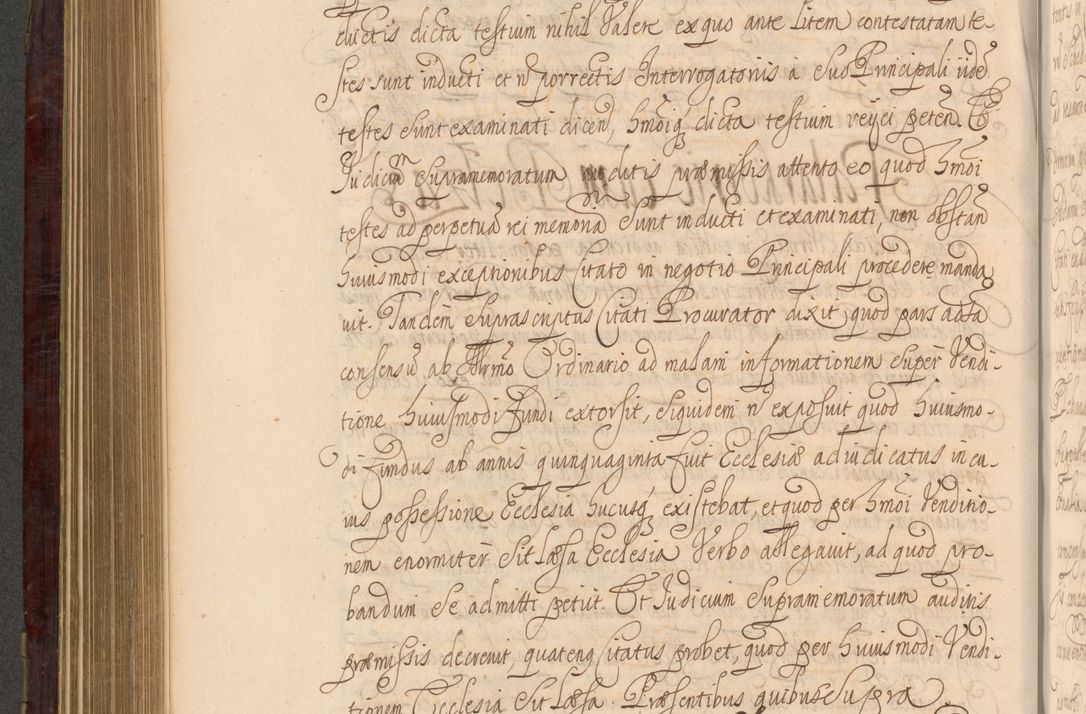 ductis dicta testium nihil Valere ex quo ante Litem contestatam te-
stes sunt inducti et n̄ porrectis Interrogatoriis à Suo Principali iidē
testes Sunt examinati dicen̄, hm̄oiq3 dicta testium reijci peten̄. Et
Judiciūm Supramemoratum auditis præmissis attento eo quod hm̄oi
testes ad perpetuā rei memoriā Sunt inducti et examinati, non obstan̄
huiusmodi exceptionibus Citato in negotio Principali procedere manda
uit. Tandem Suprascriptus Citati Procurator dixit, quod pars acta
consensū ab Illr̄mo Ordinario ad malam informationem Super Vendi-
tione huiusmodi Fundi extorsit, Siquidem n̄ exposuit quod huiusmo-
di Fundus ab annis quinquaginta fuit Ecclesiæ adiudicatus in cu-
ius possessione Ecclesia hucusq3 existebat, et quod per hm̄oi Venditio-
nem enormiter Sit Læsa Ecclesia Verbo allegauit, ad quod pro-
bandum Se admitti petiit. Et Judicium Supramemoratum auditis
præmissis decreuit, quatenq Citatus probet, quod per huiusmodi Vendi-
tionem Ecclesia Sit Læsa. Præsentibus quibus Supra